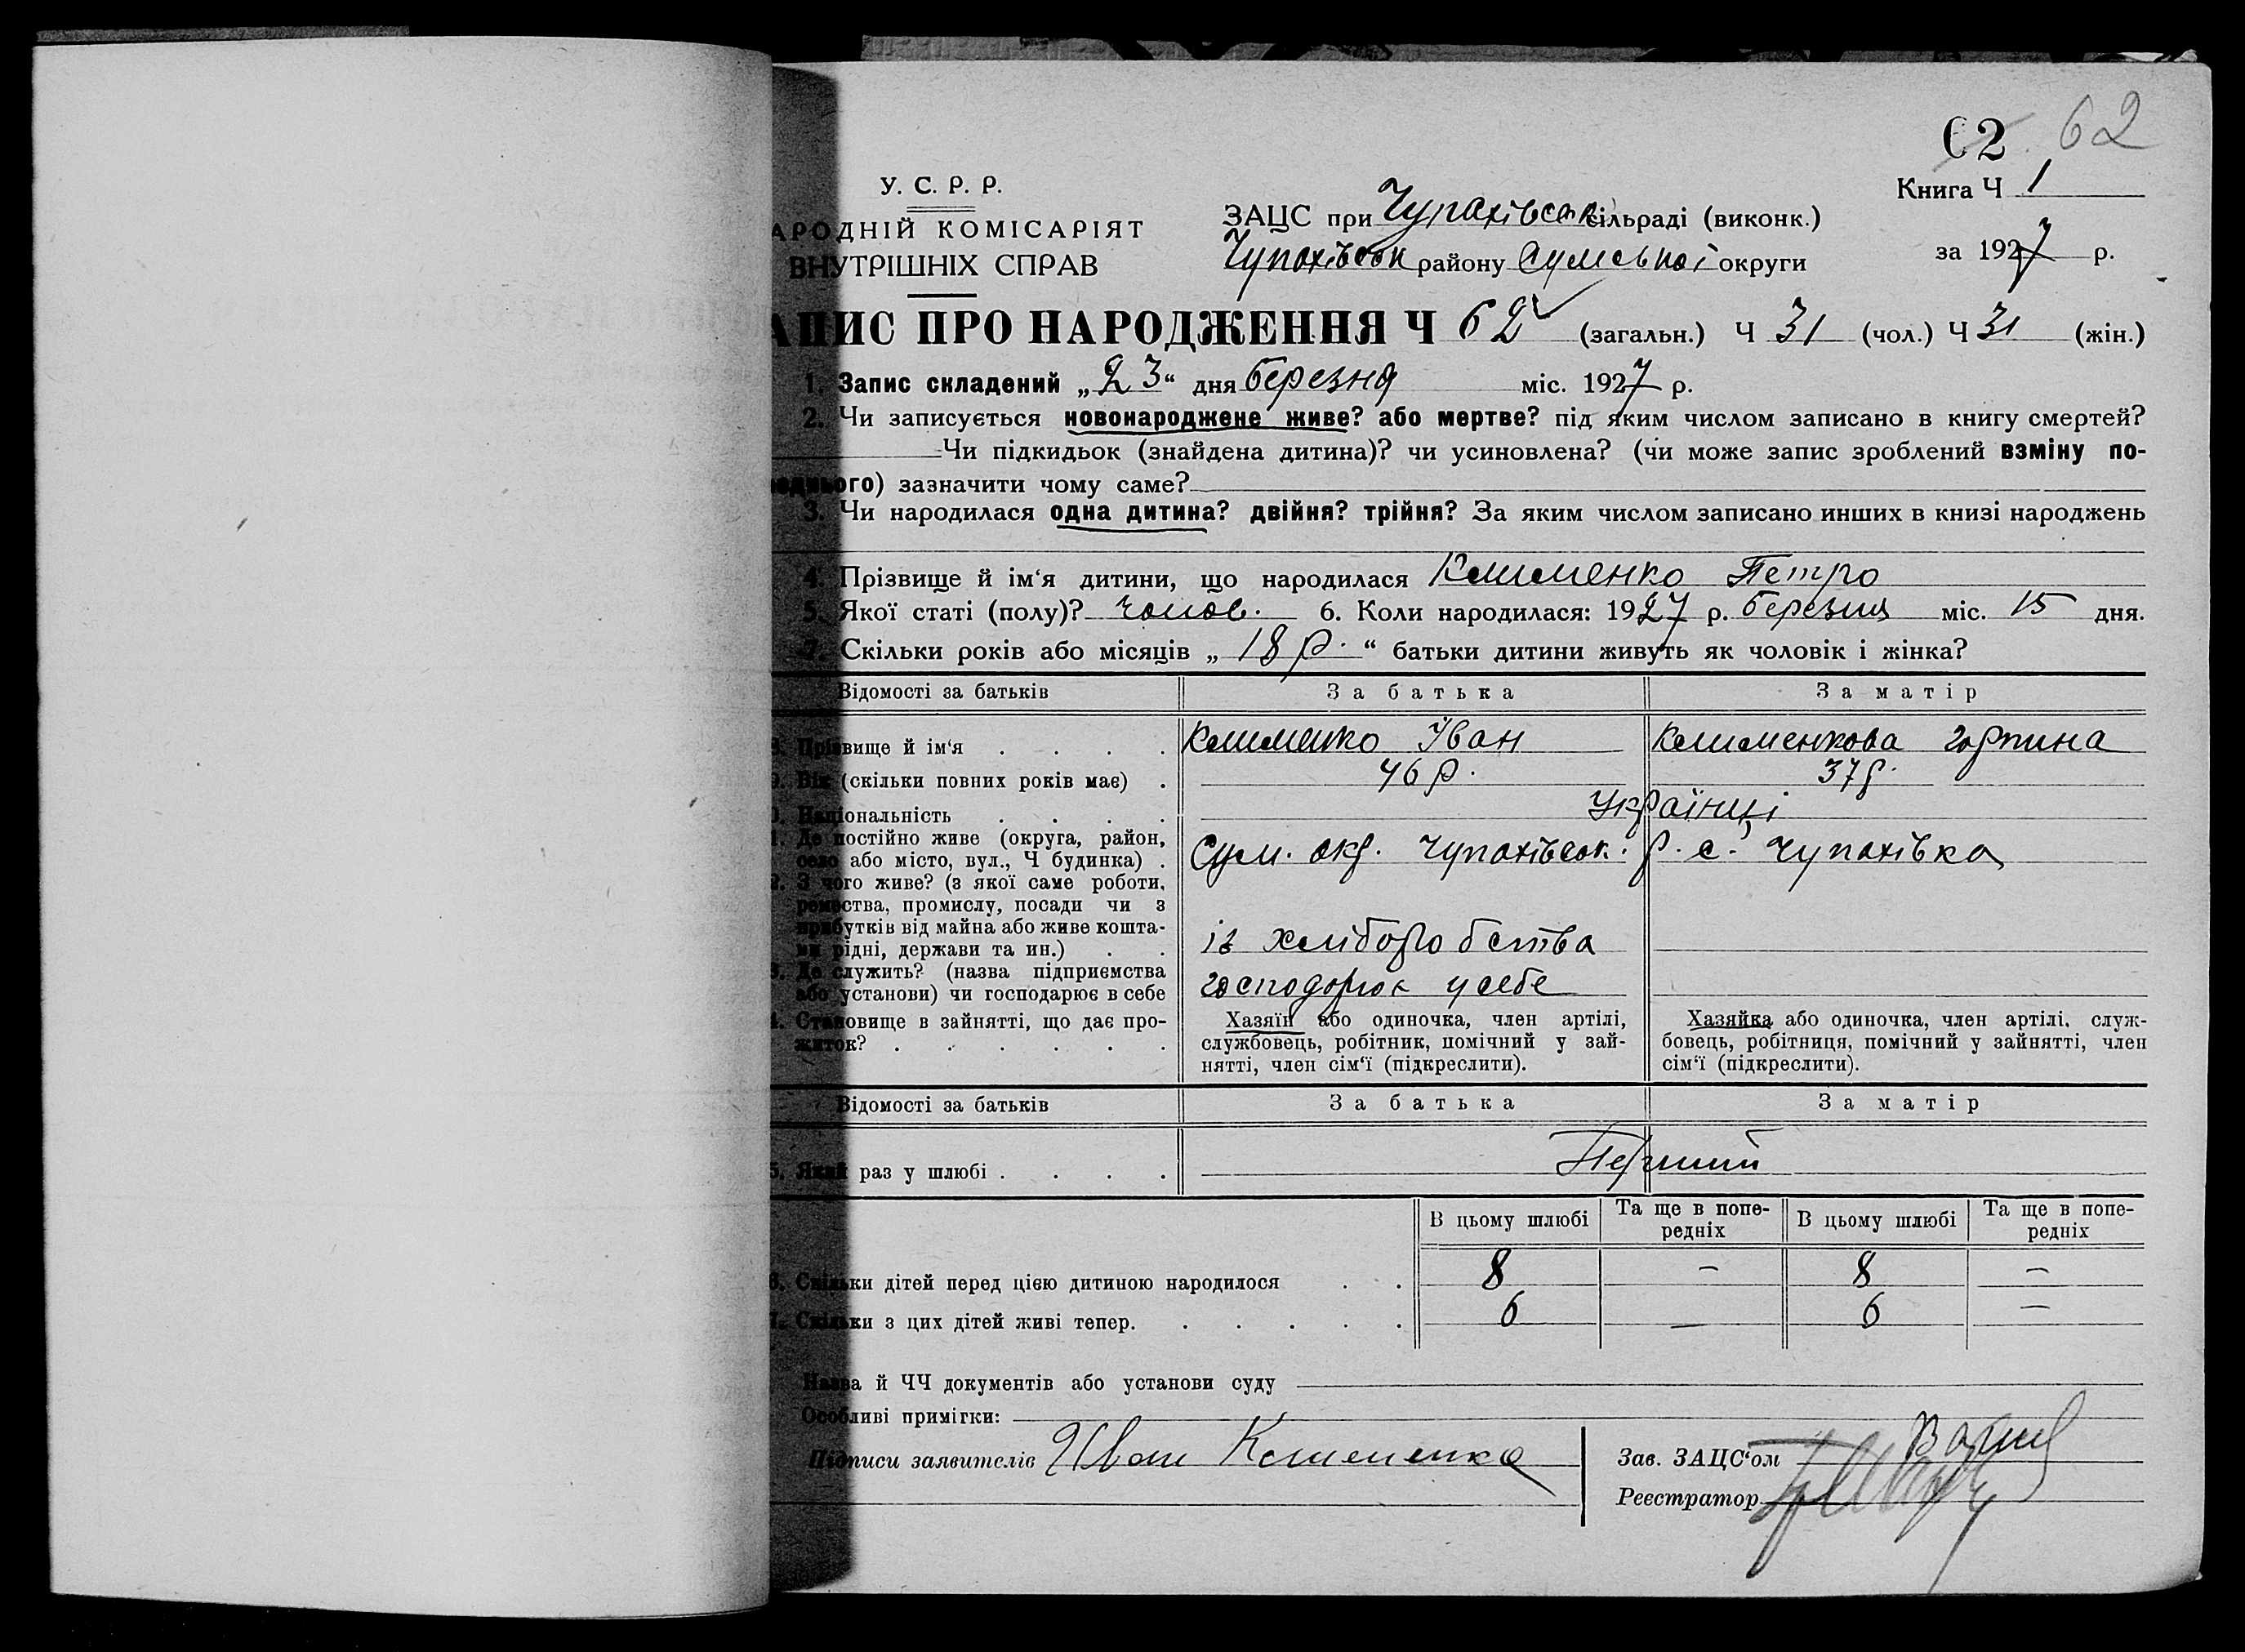 62 62
У. С. Р. Р.
Книга Ч 1
АРОДНІЙ КОМІСАРІЯТ
ЗАЦС при Чупахівськ сільраді (виконк.)
ВНУТРІШНІХ СПРАВ
Чупахівськ району Сумської округи
за 1927 р.
АПИС ПРО НАРОДЖЕННЯ Ч 62 (загальн.) Ч 31 (чол.) Ч 31 (жін.)
1. Запис складений „23“ дня березня міс. 1927 р.
2. Чи записується новонароджене живе? або мертве? під яким числом записано в книгу смертей?
Чи підкидьок (знайдена дитина)? чи усиновлена? (чи може запис зроблений взміну по-
реднього) зазначити чому саме?
3. Чи народилася одна дитина? двійня? трійня? За яким числом записано инших в книзі народжень
4. Прізвище й ім‘я дитини, що народилася Клименко Петро
5. Якої статі (полу)? чолов. 6. Коли народилася: 1927 р. березня міс. 15 дня.
7. Скільки років або місяців „18 р.“ батьки дитини живуть як чоловік і жінка?
Відомості за батьків За батька За матір
8. Прізвище й ім‘я . . . . Клименко Іван Клименкова Горпина
9. Вік (скільки повних років має) . 46 р. 37 р.
0. Національність . . . . Українці
1. Де постійно живе (округа, район,
село або місто, вул., Ч будинка) . Сум. окр. Чупахівськ. р. с. Чупахівка
2. З чого живе? (з якої саме роботи,
ремества, промислу, посади чи з
прибутків від майна або живе кошта-
ми рідні, держави та ин.) . . із хліборобства
3. Де служить? (назва підприємства
або установи) чи господарює в себе господорює у себе
4. Становище в зайнятті, що дає про-
житок? . . . . . .
Хазяїн або одиночка, член артілі,
службовець, робітник, помічний у зай-
нятті, член сім‘ї (підкреслити).
Хазяйка або одиночка, член артілі, служ-
бовець, робітниця, помічний у зайнятті, член
сім‘ї (підкреслити).
Відомості за батьків За батька За матір
5. Який раз у шлюбі . . . . Перший
В цьому шлюбі Та ще в попе-
редніх В цьому шлюбі Та ще в попе-
редніх
6. Скільки дітей перед цією дитиною народилося . . 8 – 8 –
7. Скільки з цих дітей живі тепер. . . . . . 6 – 6 –
Назва й ЧЧ документів або установи суду
Особливі примітки:
Підписи заявителів Иван Клименко
Зав. ЗАЦС‘ом
Реєстратор